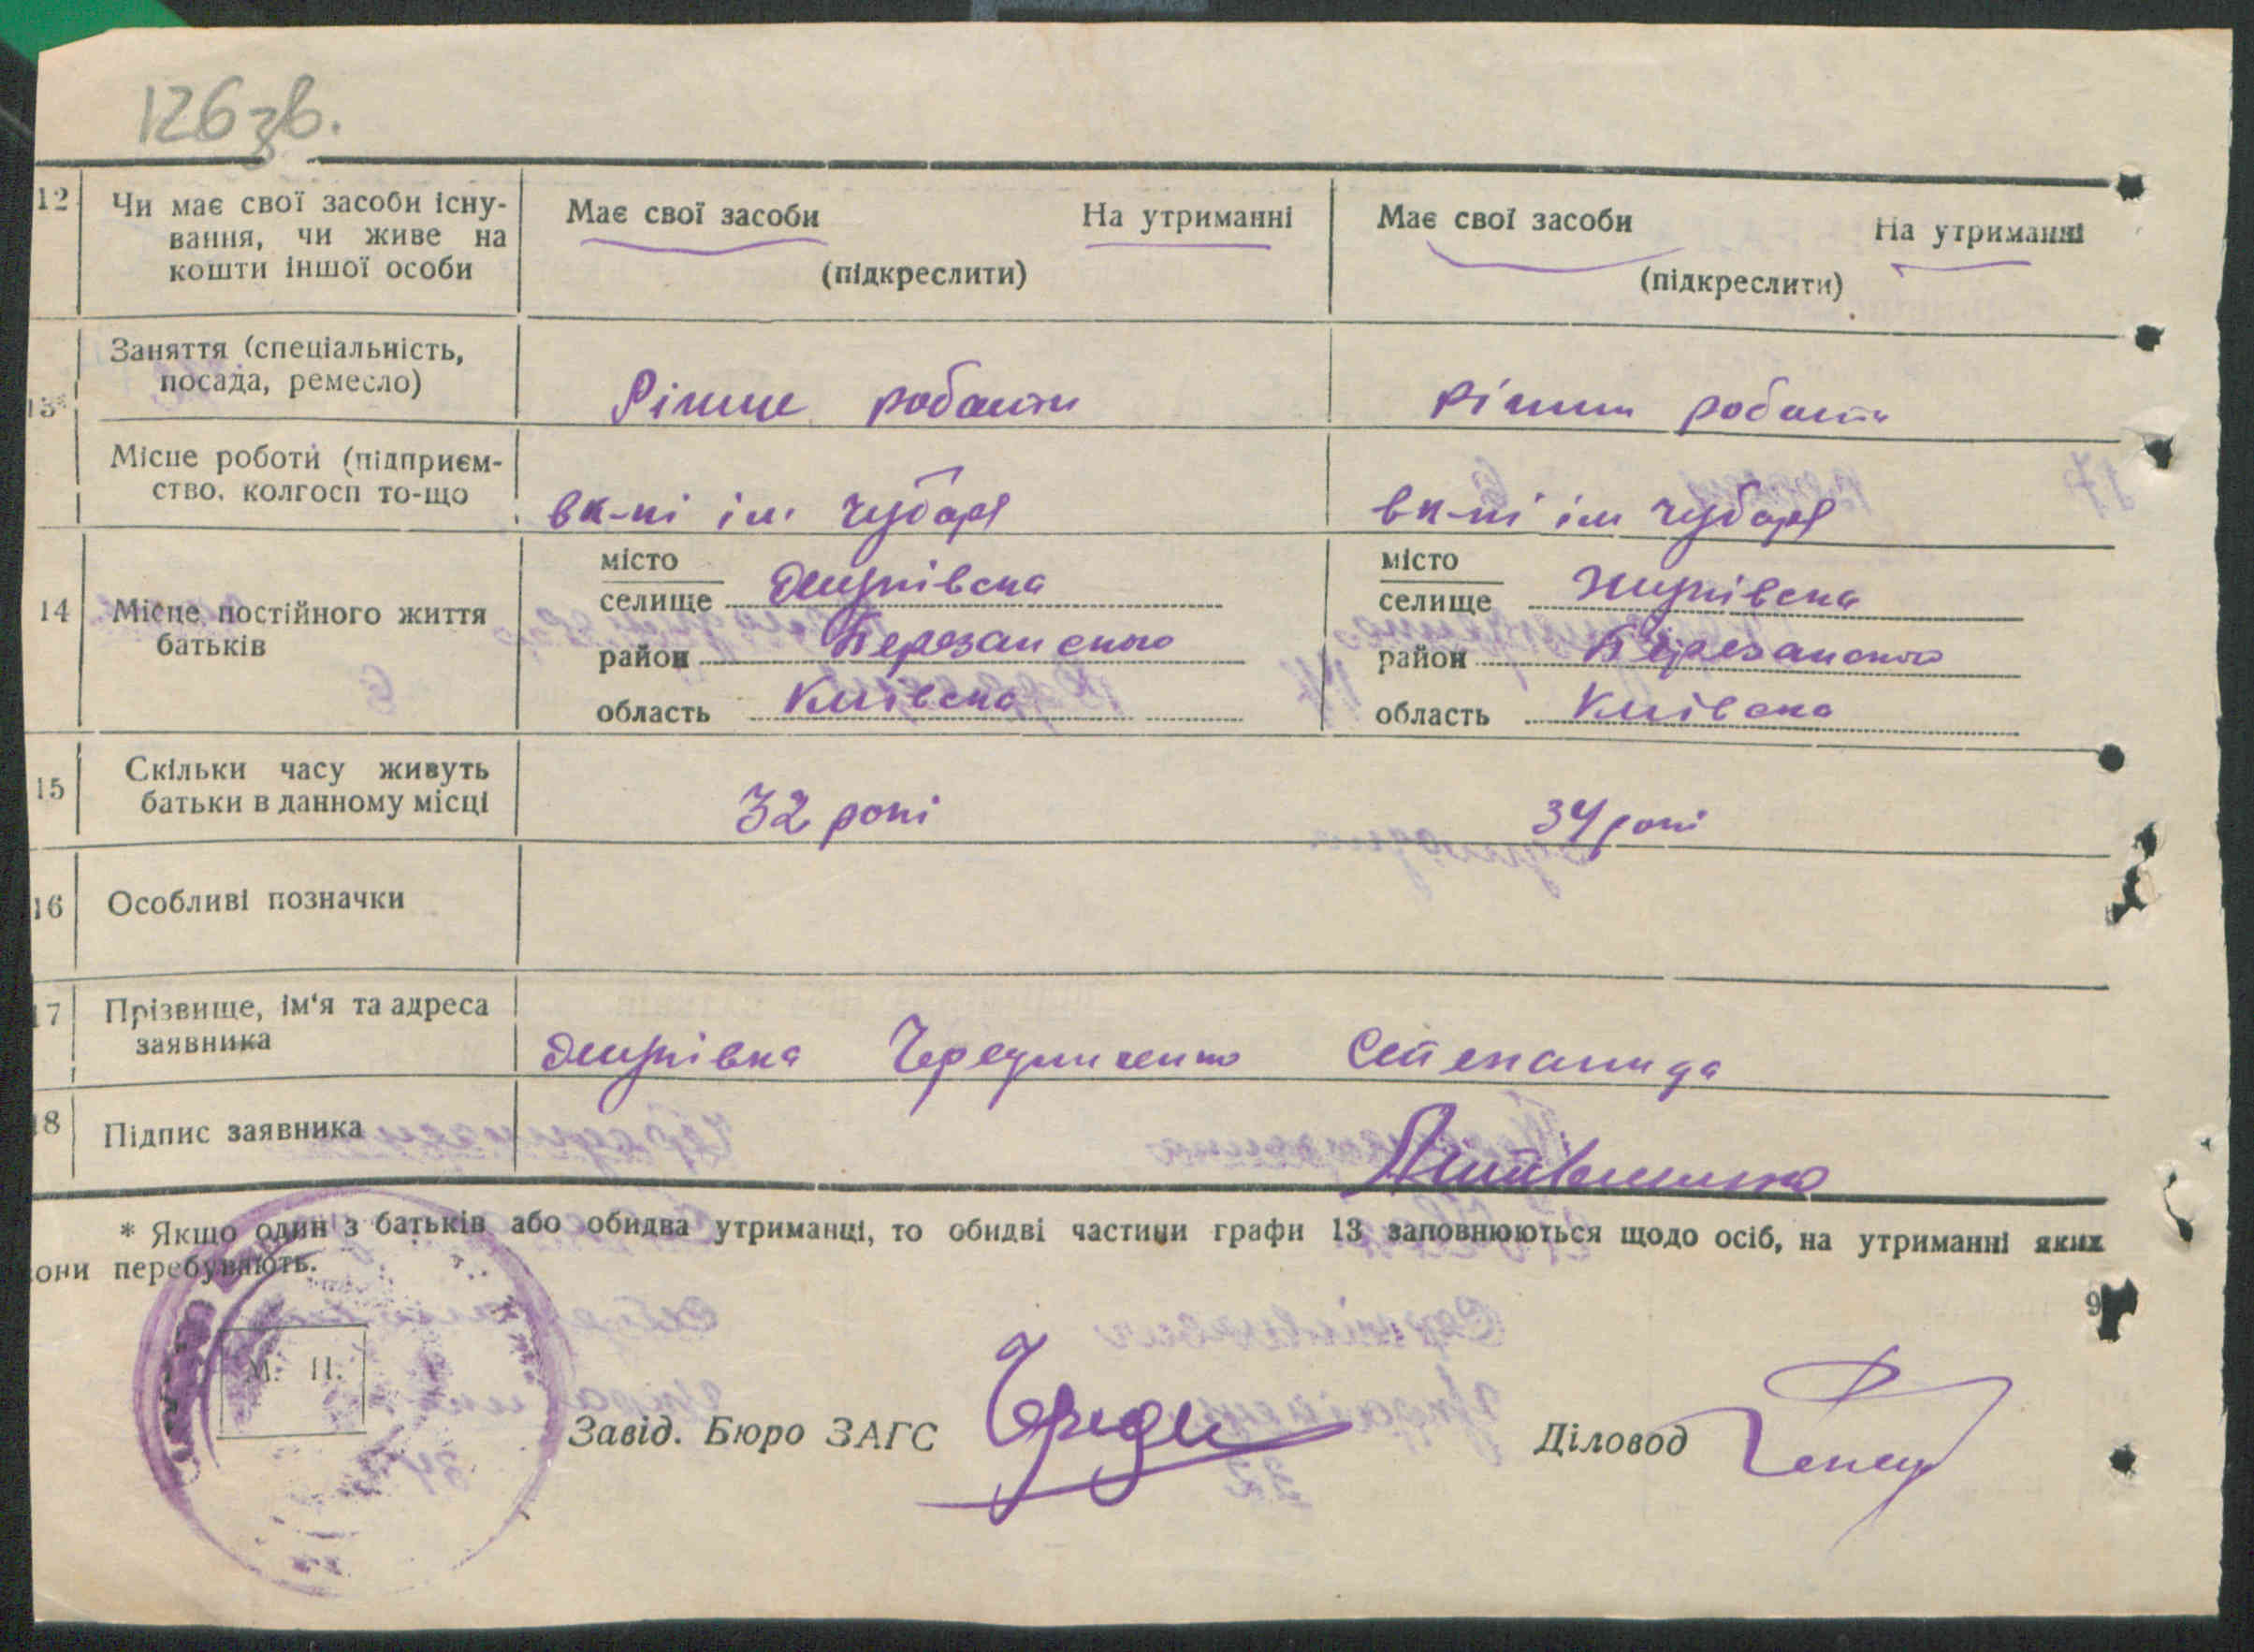 126 зв.
12 Чи має свої засоби існу-
вання, чи живе на
кошти іншої особи
Має свої засоби На утриманні
(підкреслити)
Має свої засоби На утриманні
(підкреслити)
13* Заняття (спеціальність,
посада, ремесло)
Рільне работи
рільни роботи
Місце роботи (підприєм-
ство, колгосп то-що
вк-пі ім. Чубаря
вк-пі ім Чубаря
14 Місце постійного життя
батьків
місто
селище Жуківска
район Березанского
область Київска
місто
селище Жуківска
район Березанского
область Київска
15 Скільки часу живуть
батьки в данному місці
32 рокі
34 рокі
16 Особливі позначки
17 Прізвище, ім'я та адреса
заявника
Чередниченко Степанида
18 Підпис заявника
* Якщо один з батьків або обидва утриманці, то обидві частини графи 13 заповнюються щодо осіб, на утриманні яких
вони перебувають.
9
М. П.
Завід. Бюро ЗАГС
Діловод